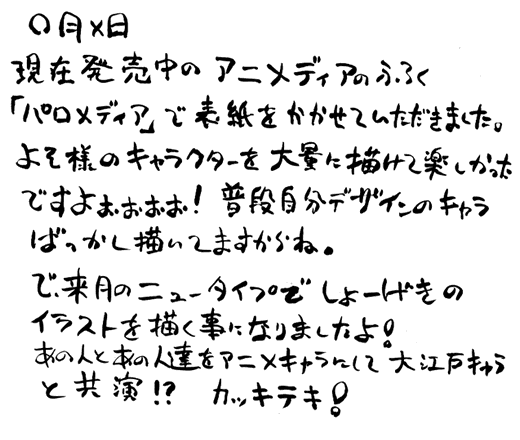 〇月×日
現在発売中のアニメディアのふろく
「パロメディア」で表紙をかかせていただきました。
よそ様のキャラクターを大量に描けて楽しかった
ですよぉぉぉぉ!普段自分デザインのキャラ
ばっかし描いてますからね。
で、来月のニュータイプでしょーげきの
イラストを描く事になりましたよ!
あの人とあの人達をアニメキャラにして大江戸キャラ
と共演!?カッキテキ!